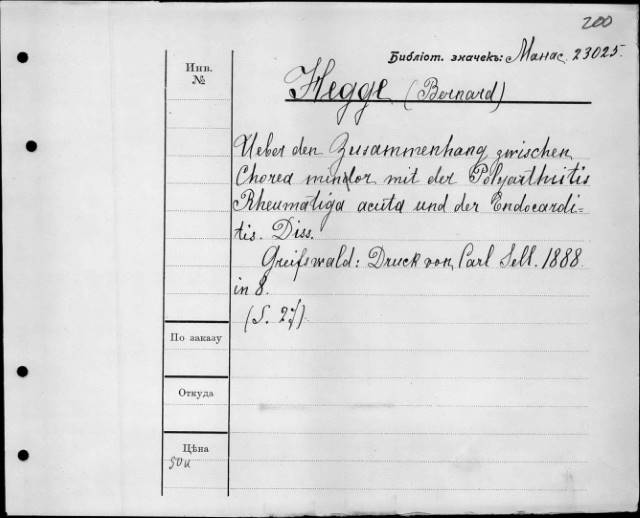 200
Библіот. значекъ: Манас. 23025.
Инв.
№
Hegge (Bernard)
Ueber den Zusammenhang zwischen
Chorea minor mit der Polyarthritis
Rheumatiga acuta und der Endocardi=
tis. Diss.
Greifswald: Druck von Carl Sell. 1888
in 8.
(S. 27)
По заказу
Откуда
Цѣна
50